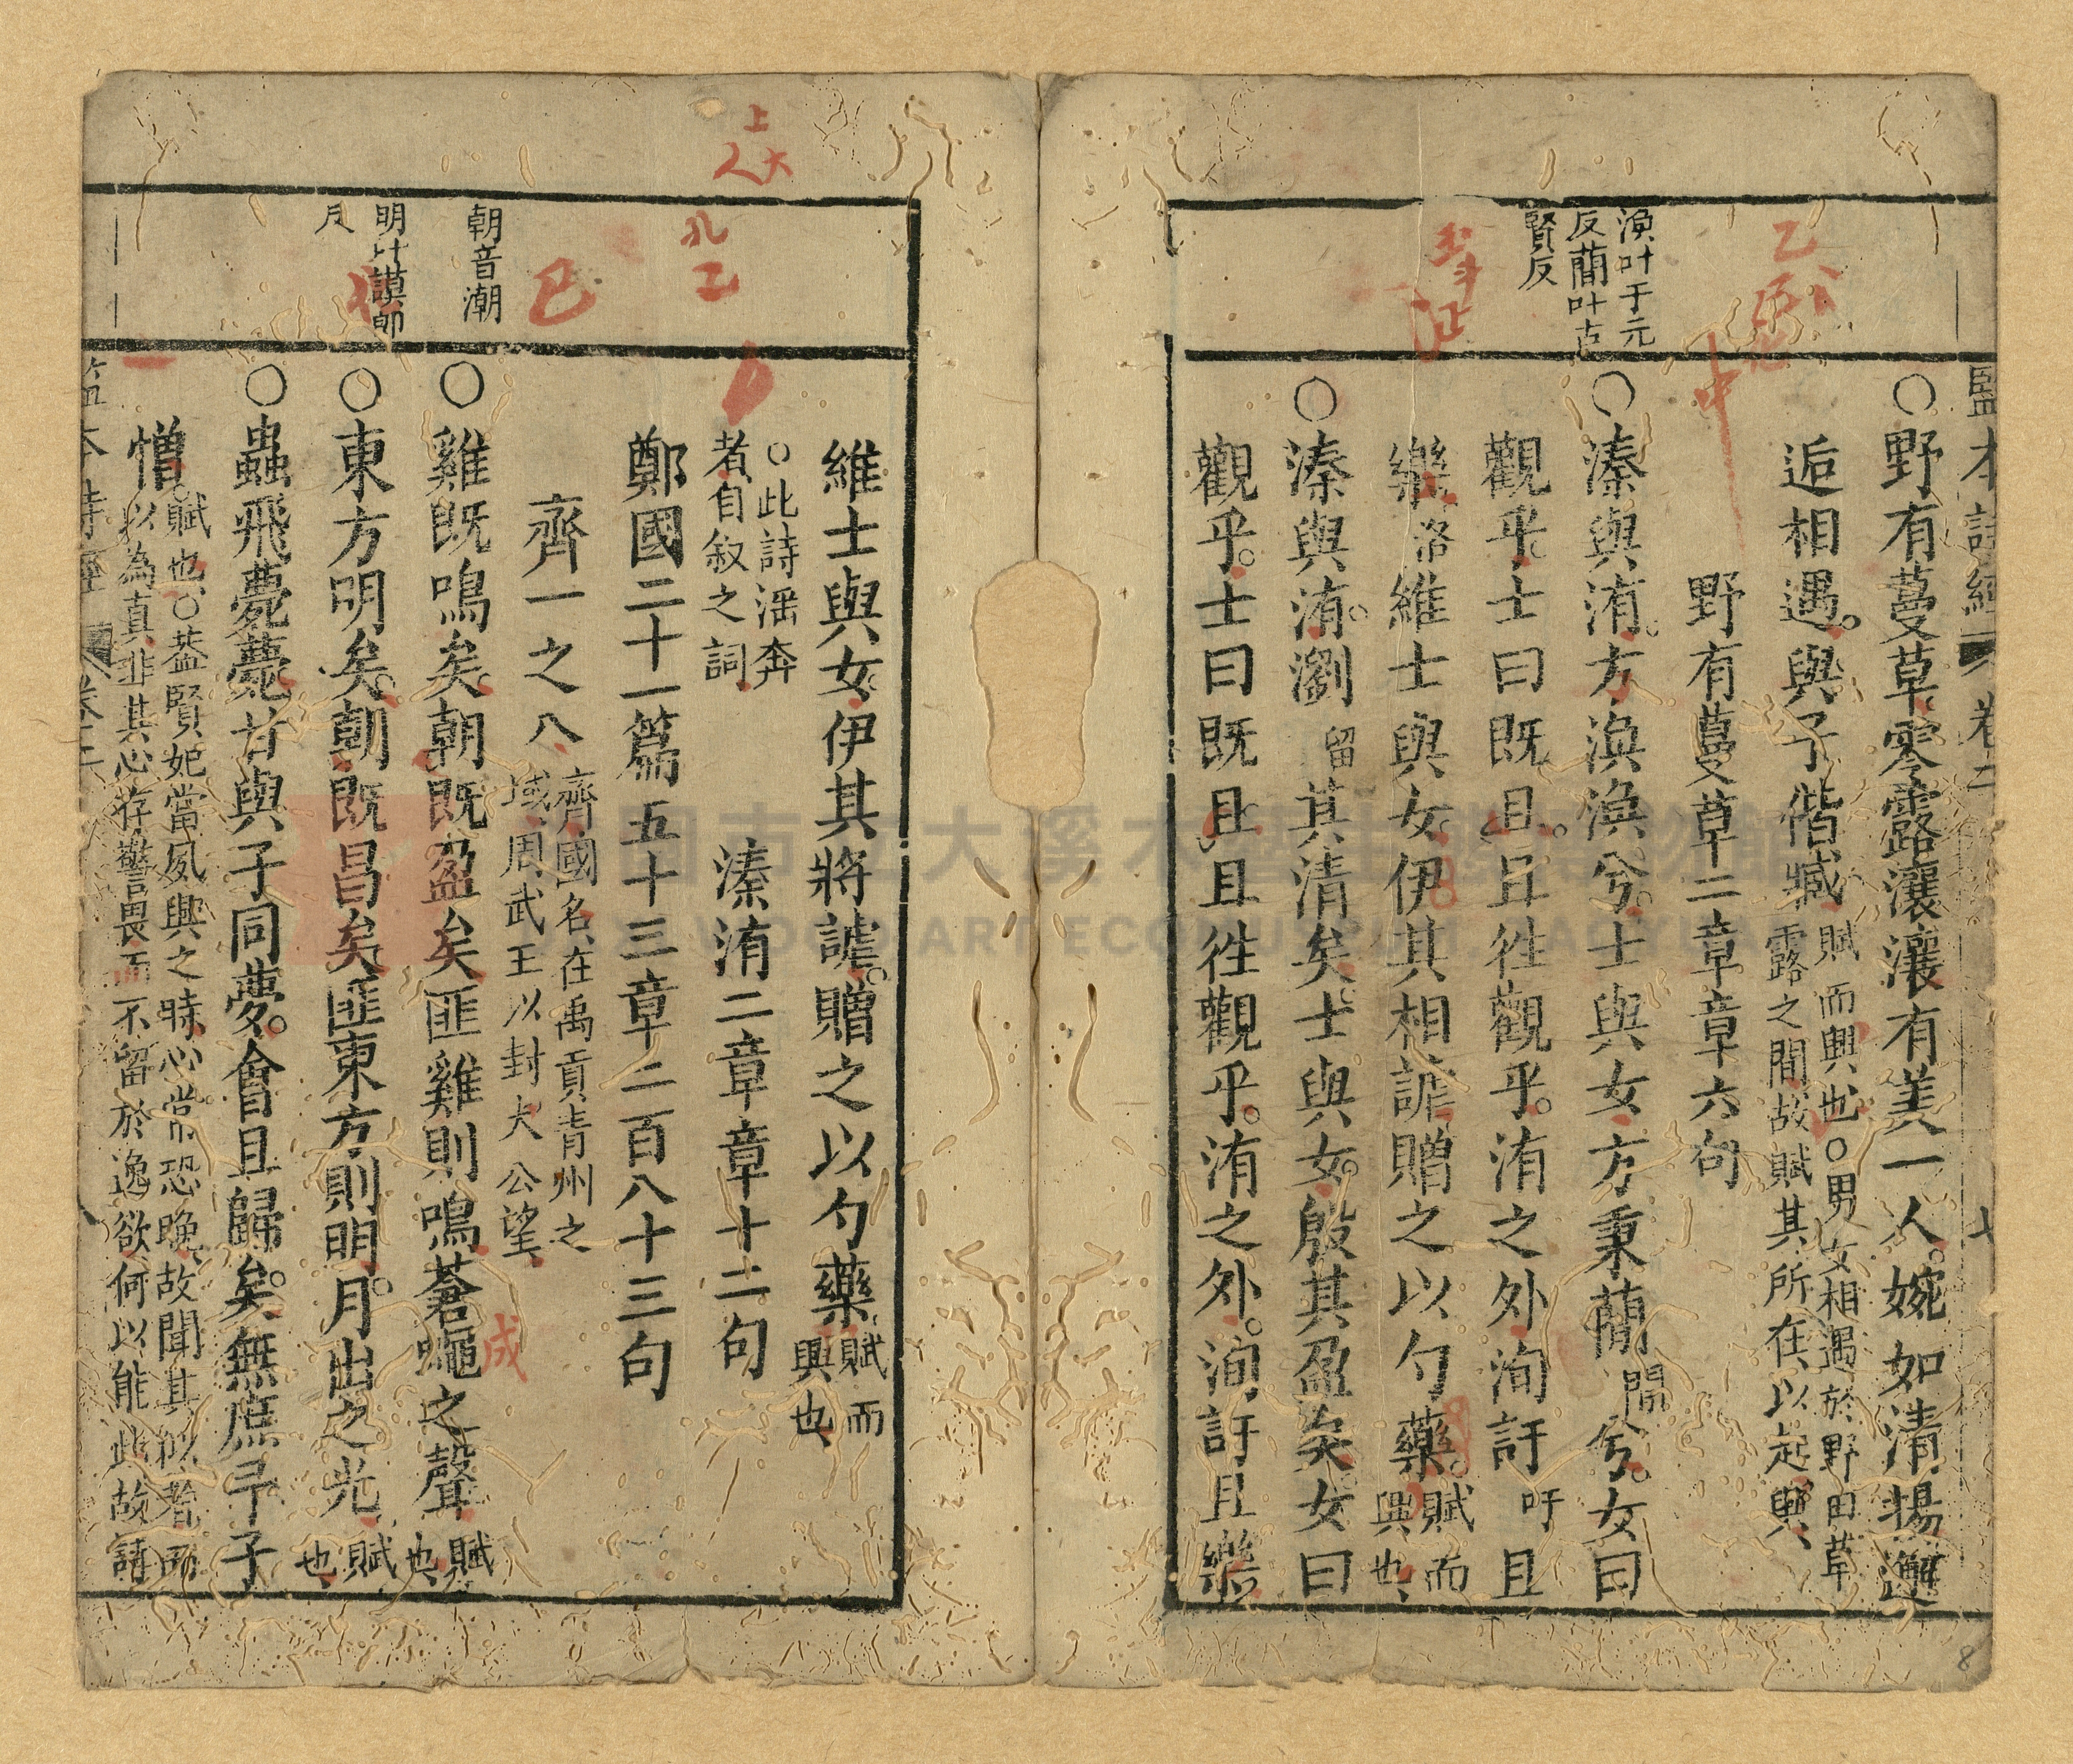 監本詩經 卷二 七
○野有蔓草零露瀼瀼有美一人。婉如清揚邂
逅相遇。與子偕臧 賦而興也○男女相遇於野田草
露之間故賦其所在以起興
野有蔓草二章章六句
渙叶于元
反蕳叶古
賢反
○溱與洧。方渙渙兮。士與女方秉蕳 閒 兮。女曰
觀乎。士曰既且。且徃觀乎。洧之外洵訏 吁 且
樂 洛 維士與女。伊其相謔贈之以勺藥。 賦而
興也
○溱與洧。瀏 留 其清矣。士與女。殷其盈矣女曰
觀乎。士曰既且且徃觀乎。洧之外。洵訏且樂
維士與女伊其將謔。贈之以勺藥 賦而
興也
○此詩淫奔
者自叙之詞
溱洧二章章十二句
鄭國二十一篇五十三章二百八十三句
齊一之八 齊國名在禹貢青州之
域周武王以封大公望
朝音潮
○雞既鳴矣。朝既盈矣匪雞則鳴蒼蠅之聲 賦
也
明叶謨郎
反
○東方明矣。朝既昌矣匪東方則明。月出之光 賦
也
○蟲飛薨薨甘與子同夢。會且歸矣。無庶予子
憎 賦也○蓋賢妃當夙興之時心常恐晚故聞其似者而
以為真非其心存警畏而不留於逸欲何以能此故詩
上
大人
孔
乙
巳
成
中
8